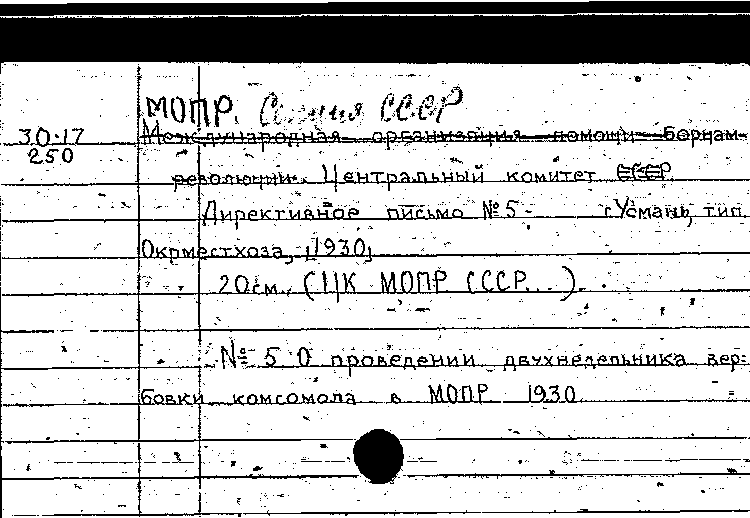 МОПР. Секция СССР
30-17
250
Международная организация помощи борцам
революции. Центральный комитет СССР
Директивное письмо № 5 - г. Усмань, тип.
Окрместхоза, [1930]
20 см. (ЦК МОПР СССР...).
№ 5 О проведении двухнедельника вер-
бовки комсомола в МОПР 1930